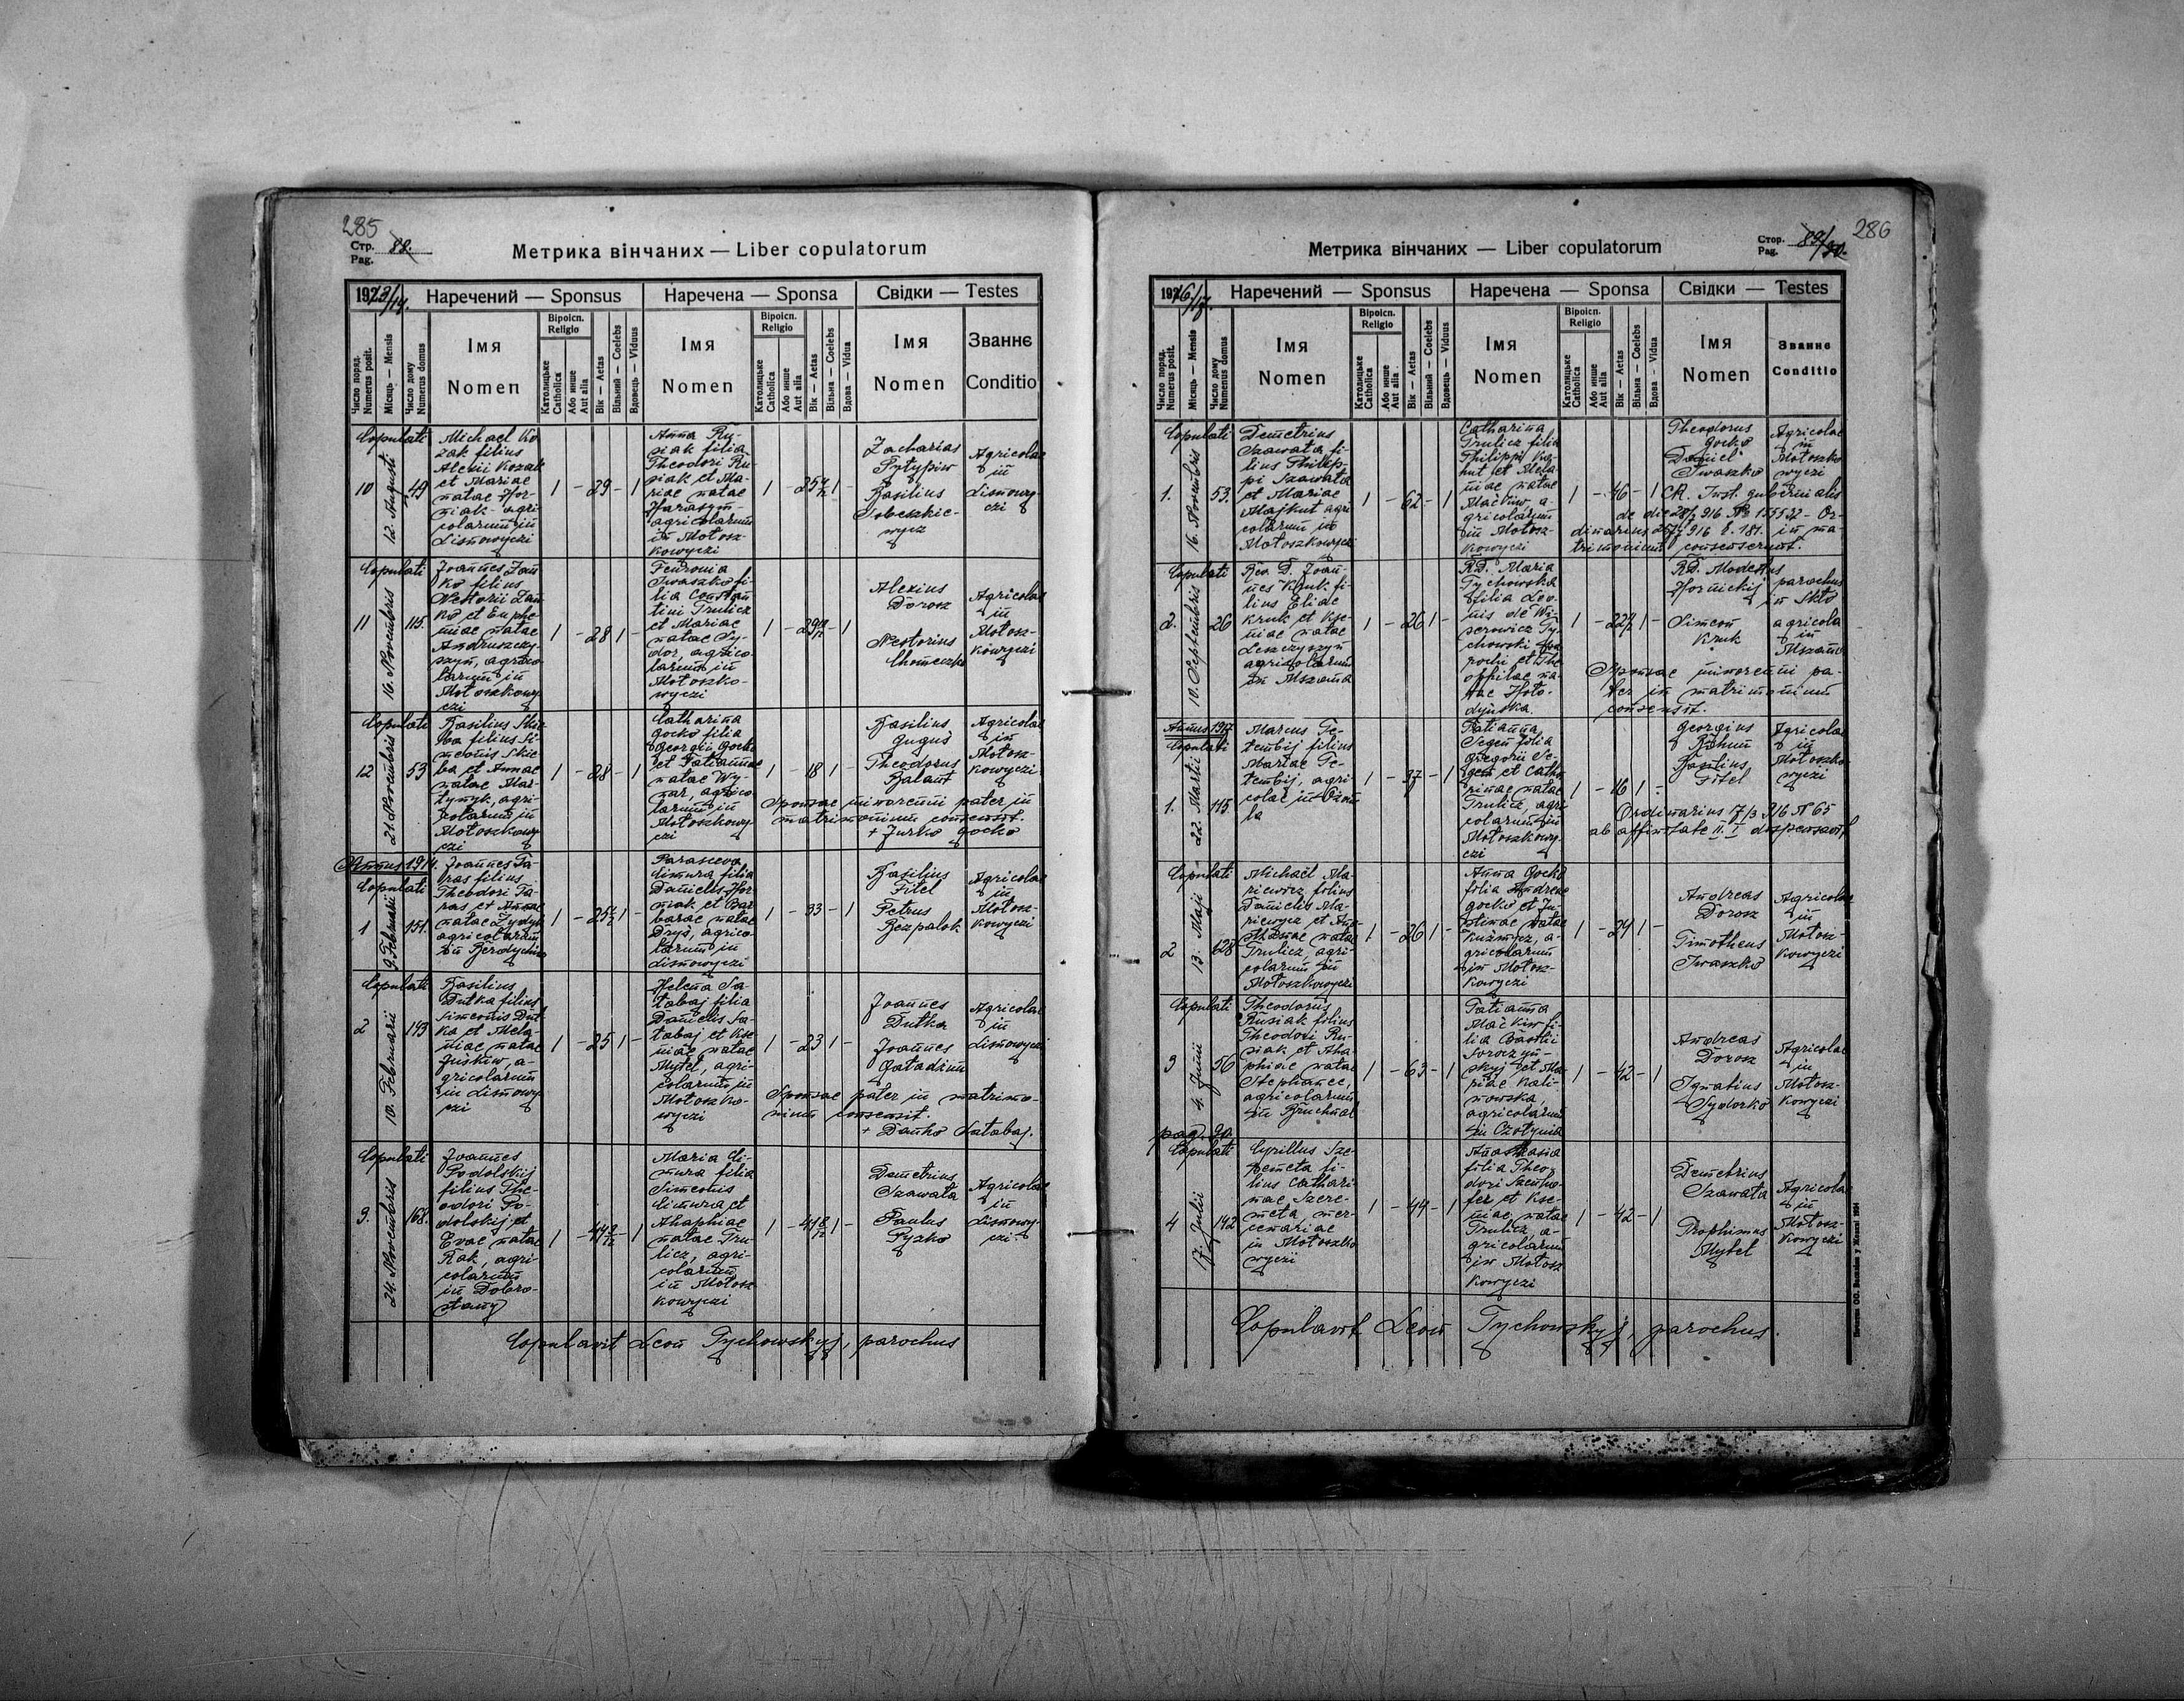 285
Стр.
Pag. 88.
Метрика вінчаних — Liber copulatorum
1913/14.
Наречений — Sponsus
Наречена — Sponsa
Свідки — Testes
Число поряд.
Numerus posit.
Місяць — Mensis
Число дому
Numerus domus
Імя
Nomen
Віроісп.
Religio
Католицьке
Catholica
Або инше
Aut alia
Вік — Aetas
Вільний — Coelebs
Вдовець — Viduus
Імя
Nomen
Віроісп.
Religio
Католицьке
Catholica
Або инше
Aut alia
Вік — Aetas
Вільна — Coelebs
Вдова — Vidua
Імя
Nomen
Званнє
Conditio
Copulati
10
12. Augusti
49
Michael Ko-
zak filius
Alexii Kozak
et Mariae
natae Hor-
niak - agri
colarum in
Lisnowyczi
1 - 29 - 1
Anna Ru-
siak filia
Theodori Ru-
siak et Ma-
riae natae
Harasym -
agricolarum
in Mołosz-
kowyczi
1 - 25 1 -
Zacharias
Prytypiw
Basilius
Sobeszkie-
wycz
Agricolae
in
Lisnowy-
czi
Copulati
11
16. Novembris
115.
Joannes Dan
ko filius
Nestorii Dan
ko et Euphe
miae natae
Andruszczy-
szyn, agrico
larum in
Mołoszkowy
czi
1 - 28 1 -
Fevronia
Iwaszko fi-
lia Constan
tini Trulicz
et Mariae
natae Sy-
dor, agrico-
larum in
Mołoszko-
wyczi
1 - 29 - 1
Alexius
Dorosz
Nestorius
Chomeczko
Agricolae
in
Mołosz-
kowyczi
Copulati
12
21. Novembris
53
Basilius Skie
ba filius Si-
meonis Skie
ba et Annae
natae Mar-
tynyk, agri-
colarum in
Mołoszkowy
czi
1 - 28 - 1
Catharina
Gocko filia
Georgii Gocko
et Tatiannae
natae Wy-
nar, agrico
larum in
Mołoszkowy
czi
1 - 18 1 -
Basilius
Guguś
Theodorus
Bałant
Agricolae
in
Mołosz-
kowyczi
Sponsae minorenni pater in
matrimonium consensit.
+ Jurko Gocko
Annus 1914.
Copulati
1
9. Februarii
151.
Joannes Ta-
ras filius
Theodori Ta-
ras et Annae
natae Żydyk
agricolarum
in Berdychiw
1 - 25 1 -
Parasceva
Cimura filia
Danielis Hor-
niak et Bar
barae natae
Dryś, agrico-
larum in
Lisnowyczi
1 - 33 - 1
Basilius
Fitel
Petrus
Bezpalok
Agricolae
in
Mołosz-
kowyczi
Copulati
2
10. Februarii
193
Basilius
Dutka filius
Simeonis Dut
ka et Mela-
niae natae
Juśkiw, a-
gricolarum
in Lisnowy
czi
1 - 25 1 -
Helena Sa-
tabaj filia
Danielis Sa-
tabaj et Kse-
niae natae
Mytel, agri-
colarum in
Mołoszko-
wyczi
1 - 23 1 -
Joannes
Dutka
Joannes
Gatadiun
Agricolae
in
Lisnowyczi
Sponsae pater in matrimo-
nium consensit.
+ Danko Satabaj.
Copulati
3.
24. Novembris
168.
Joannes
Podolskij
filius The-
odori Po-
dolskij et
Evae natae
Rak, agri-
colarum
in Dobro-
stany
1 - 44 - 1
Maria Ci-
mura filia
Simeonis
Cimura et
Ahaphiae
natae Tru-
licz, agri-
colarum
in Mołosz
kowyczi
1 - 41 1 -
Demetrius
Szawała
Paulus
Pyzko
Agricolae
in
Lisnowy-
czi
Copulavit Leon Tychowskyj, parochus
286
Стор.
Pag. 89/90.
Метрика вінчаних — Liber copulatorum
1916/17.
Наречений — Sponsus
Наречена — Sponsa
Свідки — Testes
Число поряд.
Numerus posit.
Місяць — Mensis
Число дому
Numerus domus
Імя
Nomen
Віроісп.
Religio
Католицьке
Catholica
Або инше
Aut alia
Вік — Aetas
Вільний — Coelebs
Вдовець — Viduus
Імя
Nomen
Віроісп.
Religio
Католицьке
Catholica
Або инше
Aut alia
Вік — Aetas
Вільна — Coelebs
Вдова — Vidua
Імя
Nomen
Званнє
Conditio
Copulati
1.
16. Novembris
53.
Demetrius
Szawała fi-
lius Philip-
pi Szawała
et Mariae
Majkut agri
colarum in
Mołoszkowyczi
1 - 62 - 1
Catharina
Trulicz filia
Philippi Ka-
hut et Mela-
niae natae
Maćkiw, a-
gricolarum
in Mołosz-
kowyczi
1 - 46 - 1
Theodorus
Gocko
Daniel
Iwaszko
Agricolae
in
Mołoszko
wyczi
CR. Inst. gubernialis
de die 916 No 155522 - Or-
dinarius 916 l. 181. in ma-
trimonium consenserunt.
Copulati
2.
10. Septembris
26
Rev. D. Joan-
nes Kruk fi-
lius Eliae
Kruk et Kse-
niae natae
Leszczyszyn
agricolarum
in Mszana
1 - 26 1 -
RD. Maria
Tychowska
filia Leo-
nis de Wi-
serowicz Ty-
chowski pa
rochi et The
ophilae na-
tae Hoło-
dyńska.
1 - 22 1 -
RD. Modestus
Hornickij
Simeon
Kruk
parochus
in Skło
agricola
in
Mszana
Sponsae minorenni pa-
ter in matrimonium
consensit.
Annus 1917
Copulati
1.
22. Martii
115.
Marcus Te-
tembij filius
Mariae Te-
tembij, agri
colae in Ożom
la
1 - 37 - 1
Tatianna
Segen filia
Gregorii Se-
gen et Catha
rinae natae
Trulicz, agri
colarum in
Mołoszkowy-
czi
1 - 16 1 -
Georgius
Bohun
Basilius
Fitel
Agricolae
in
Mołoszko
wyczi
Ordinarius 17/3 916 N 65
ab affinitate II. I dispensavit
Copulati
2
13. Maji
128
Michael Ma-
riewicz filius
Danielis Ma-
riewycz et Ana-
stasiae natae
Trulicz, agri-
colarum in
Mołoszkowyczi
1 - 26 1 -
Anna Gocko
filia Andreae
Gocko et Ju-
stinae natae
Kuźmycz, a-
gricolarum
in Mołosz-
kowyczi
1 - 24 1 -
Andreas
Dorosz
Timotheus
Iwaszko
Agricolae
in
Mołosz-
kowyczi
Copulati
3
4. Junii
56
Theodorus
Rusiak filius
Theodori Ru-
siak et Aha-
phiae natae
Stephanec,
agricolarum
in Bruchnal
1 - 63 - 1
Tatianna
Maćkiw fi-
lia Basilii
Soroczyn-
skyj et Ma-
riae Kali-
nowska,
agricolarum
in Czołynia
1 - 42 - 1
Andreas
Dorosz
Ignatius
Sydorko
Agricolae
in
Mołosz-
kowyczi
pag. 90.
Copulati
4
17. Julii
142
Cyrillus Sze-
remeta fi-
lius Cathari-
nae Szere-
meta mer-
cenariae
in Mołoszko
wyczi
1 - 44 - 1
Anastasia
filia Theo-
dori Szenho-
fer et Kse-
niae natae
Trulicz, a-
gricolarum
in Mołosz
kowyczi
1 - 42 - 1
Demetrius
Szawała
Prophimus
Mytel
Agricolae
in
Mołosz-
kowyczi
Copulavit Leon Tychowskyj, parochus.
Печатня ОО. Василіян у Жовкві 1924